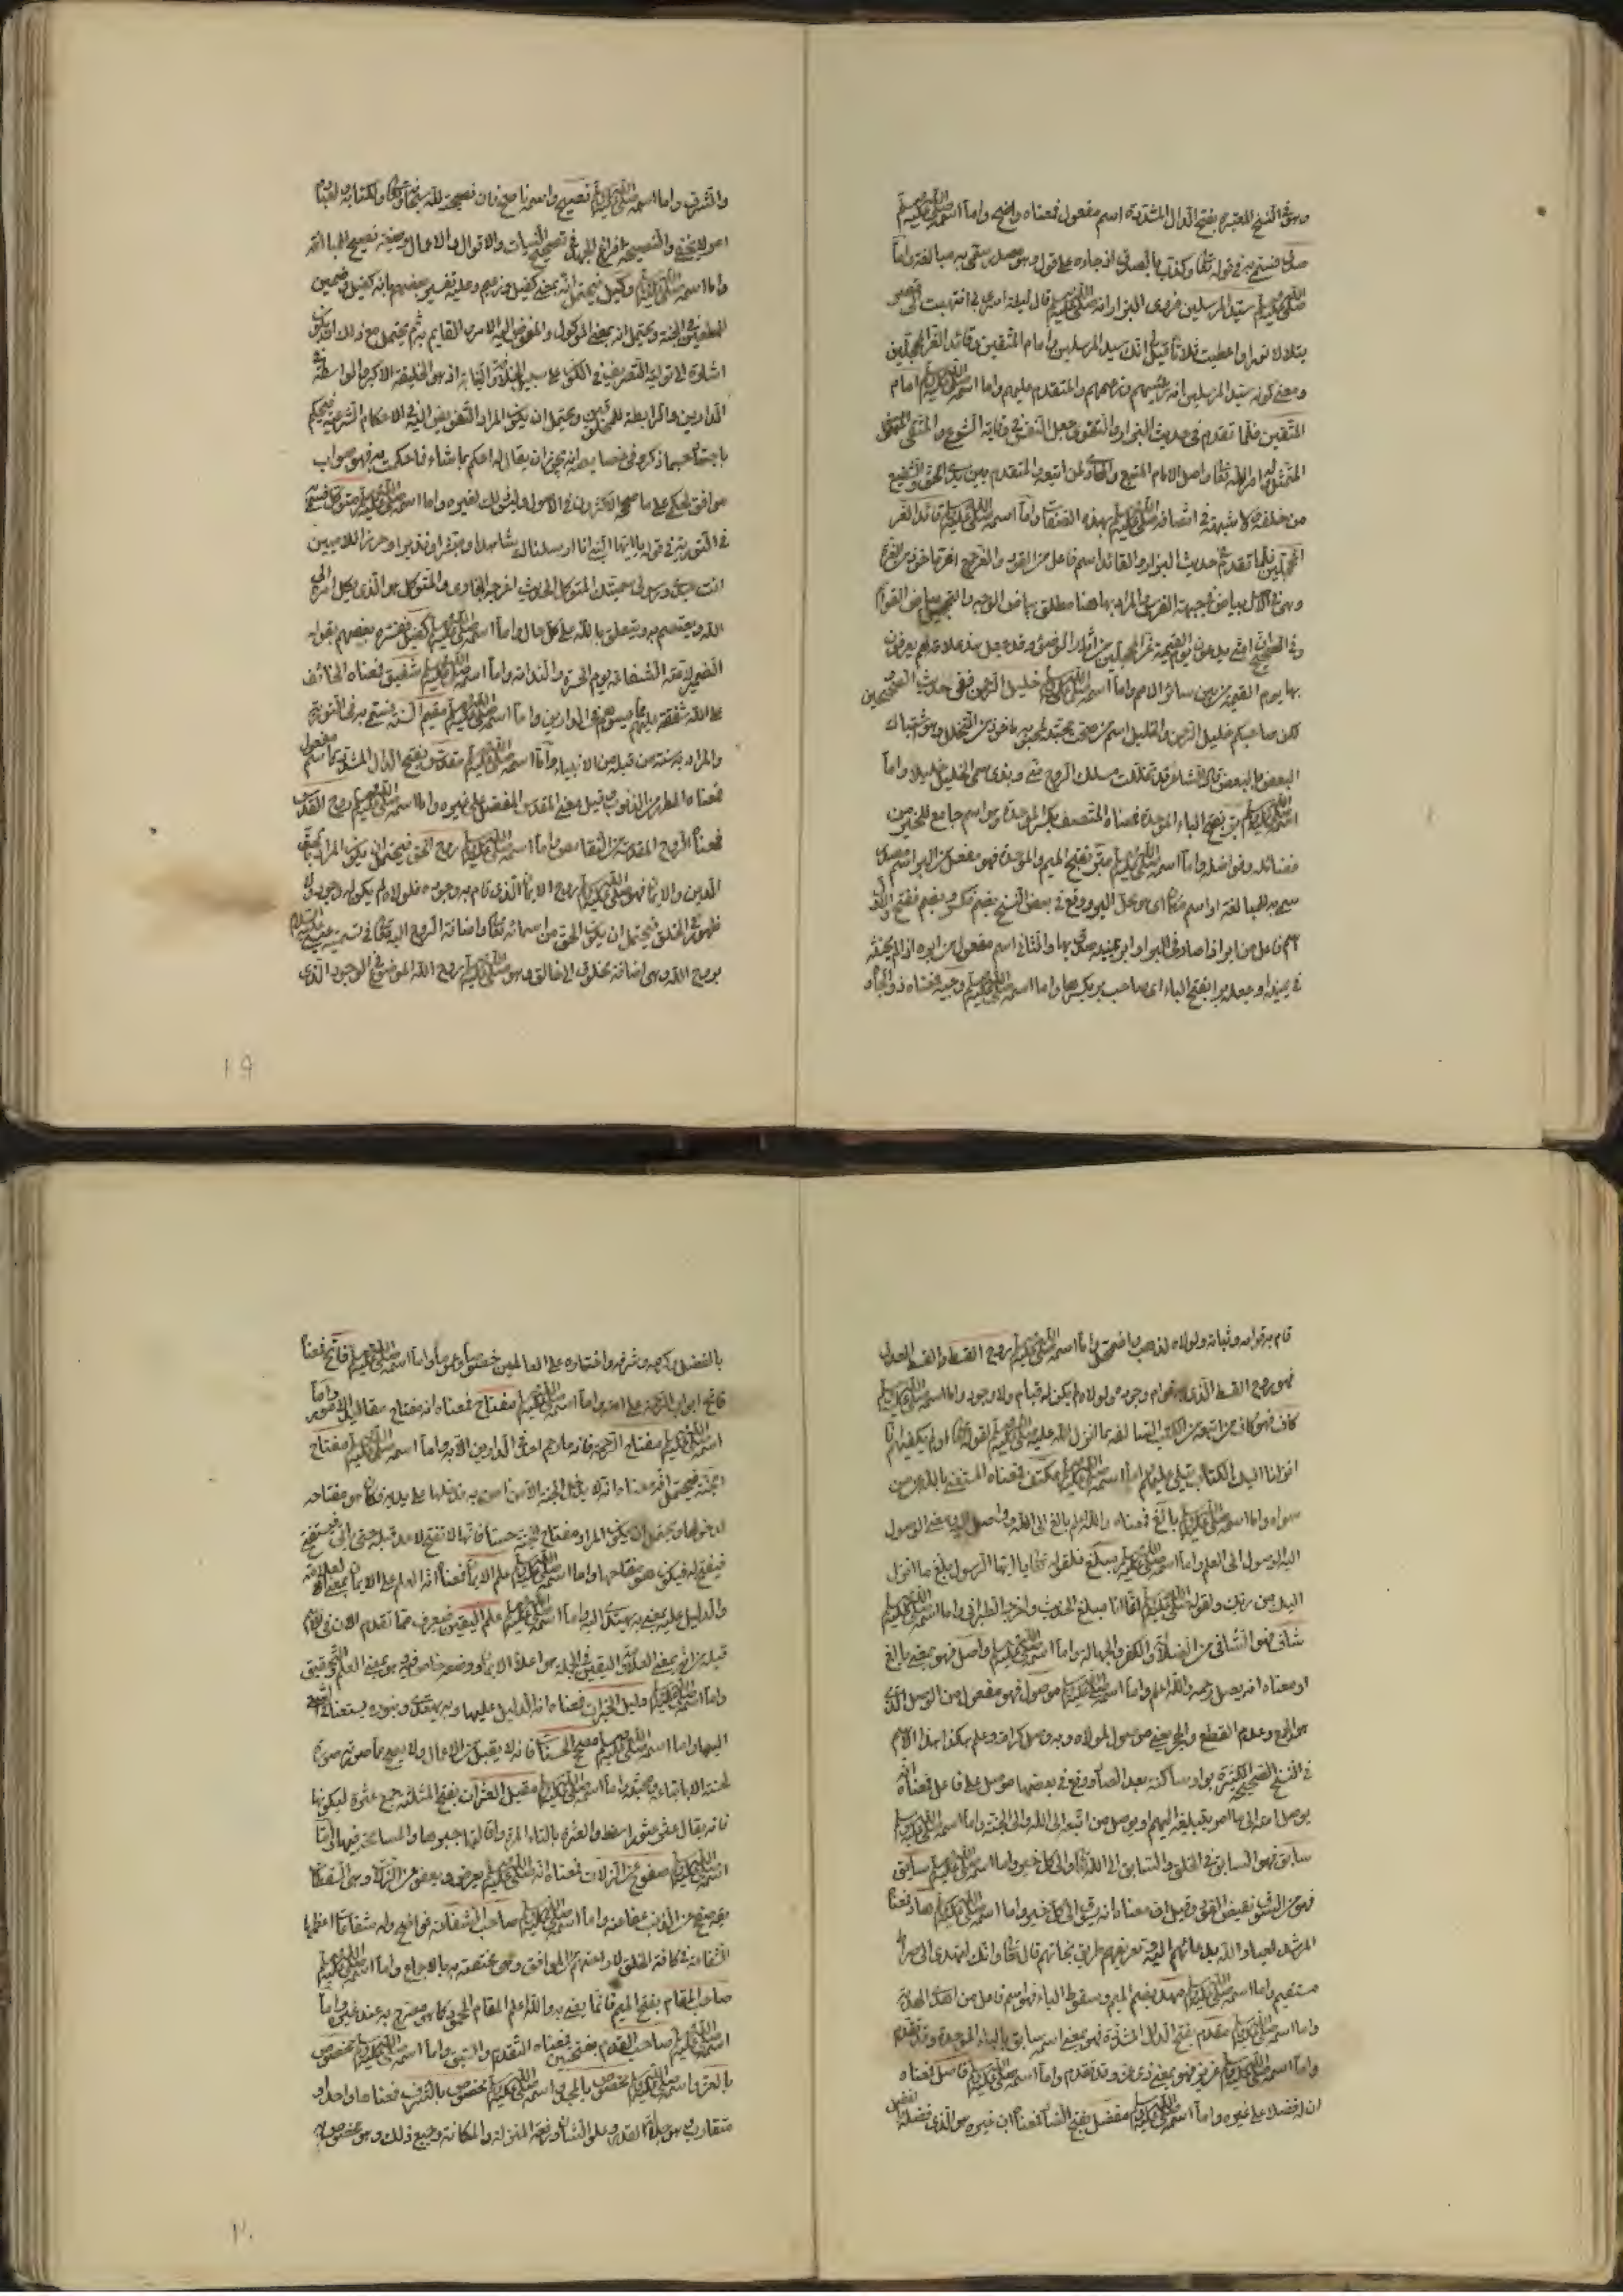 وهو في النسخ المعتبرة بفتح الدال المشددة اسم مفعول فمعناه واضح واما اسمه صلى الله عليه وسلم
صدق فسمي به في قوله تعالى وكذب بالصدق اذ جاءه على قول وهو مصدر سمي به مبالغة واما
صلى الله عليه وسلم سيد المرسلين فروى البزار انه صلى الله عليه وسلم قال ليلة اسري بي انتهيت الى قصر
يتلالا نورا واعطيت ثلاثا قيل لي انك سيد المرسلين وامام المتقين وقائد الغر المحجلين
ومعنى كونه سيد المرسلين انه رئيسهم وزعيمهم والمتقدم عليهم واما اسمه صلى الله عليه وسلم امام
المتقين فلما تقدم في حديث البزار والتقوى جعل النفس في وقاية الشرع والمتقي
الممتثل لاوامر الله تعالى واصل الامام المتبع والهادي لمن اتبعه والمتقدم بين يدي
من خلفه ولا شبهة في اتصافه صلى الله عليه وسلم بهذه الصفات واما اسمه صلى الله عليه وسلم قائد الغر
المحجلين فلما تقدم في حديث البزار والقائد اسم فاعل من القود والغر جمع اغر ماخوذ من الغرة
وهي في الاصل بياض في جبهة الفرس والمراد بها هنا مطلق بياض الوجه والتحجيل بياض القوائم
وفي الصحيح ان امتي يدعون يوم القيمة غرا محجلين من اثار الوضوء وقد جعل هذه علامة لهم يعرفون
بها يوم القيمة من بين سائر الامم واما اسمه صلى الله عليه وسلم خليل الرحمن ففي حديث الصحيحين
لكن صاحبكم خليل الرحمن والخليل اسم من صحت محبته لمحبوبه ماخوذ من التخلل وهو اشتباك
البعض بالبعض قال الشاعر قد تخللت مسلك الروح مني وبذى سمي الخليل خليلا واما
اسمه صلى الله عليه وسلم بر بفتح الباء الموحدة فمعناه المتصف بكسر الموحدة وهو اسم جامع للخير من
فضائله وفواضله واما اسمه صلى الله عليه وسلم مبر بفتح الميم والموحدة فهو مفعل من البر اسم مصدر
سمي به مبالغة او اسم مكان اي هو محل البر ووقع في بعض النسخ بضم فكسر وبضم ففتح والاول
اسم فاعل من ابر اذا صادف البر او ابر يمينه صدق بها والثاني اسم مفعول من ابره اذا لم يحنثه
في يمينه او جعله برا بفتح الباء اي صاحب بر بكسرها واما اسمه صلى الله عليه وسلم وجيه فمعناه ذو الجاه
والشرف واما اسمه صلى الله عليه وسلم نصيح واسمه ناصح فان نصيحته لله سبحانه وتعالى ولكتابه ولعباده
امر لا يخفى والنصيحة افراغ الجهد في تصحيح النيات والاقوال والاعمال وصيغة نصيح للمبالغة
واما اسمه صلى الله عليه وسلم وكيل فيحتمل انه بمعنى كفيل وزعيم وعليه تفسير بعضهم بانه كفيل وضمين
للمطيعين في الجنة ويحتمل انه بمعنى الموكول والمفوض اليه الامر القايم به ثم يحتمل مع ذلك ان يكون
اشارة الى توليه التصرف في الكون على سبيل الخلافة والنيابة اذ هو الخليفة الاكبر والواسطة في
الدارين والرابطة للمخلوقين ويحتمل ان يكون المراد التفويض اليه في الاحكام الشرعية فيحكم
باجتهاده حسبما ذكروه في خصايصه انه يجوز ان يقال له احكم بما تشاء فما حكمت به فهو صواب
موافق لحكمي على ما صححه الاكثرون في الاصول وليس ذلك لغيره واما اسمه صلى الله عليه وسلم متوكل فسمي
في التورية في قوله يا ايها النبي انا ارسلناك شاهدا ومبشرا ونذيرا وحرزا للاميين
انت عبدي ورسولي سميتك المتوكل الحديث اخرجه البخاري والمتوكل هو الذي يكل امره الى
الله ويعتصم به ويتعلق بالله على كل حال واما اسمه صلى الله عليه وسلم كفيل ففسره بعضهم بقوله
الضمين لامته الشفاعة يوم الحسرة والندامة واما اسمه صلى الله عليه وسلم شفيق فمعناه الخائف
على الله شفقة عليهم مما يسوءهم في الدارين واما اسمه صلى الله عليه وسلم مقيم السنة فسمي به في التورية
والمراد به سنة من قبله من الانبياء واما اسمه صلى الله عليه وسلم مقدس بفتح الدال المشددة اسم مفعول
فمعناه المطهر من الذنوب وقيل معنى المقدس المفضل على غيره واما اسمه صلى الله عليه وسلم روح القدس
فمعناه الروح المقدسة من النقائص واما اسمه صلى الله عليه وسلم روح الحق فيحتمل ان يكون المراد بالحق
الدين والايمان فهو صلى الله عليه وسلم روح الايمان الذي قام به وجوده فلولاه لم يكن له وجود ولا
ظهور في الخلق فيحتمل ان يكون الحق من اسمائه تعالى واضافة الروح اليه كما في تسمية عيسى عليه السلام
بروح الله وهي اضافة مخلوق الى خالق وهو صلى الله عليه وسلم روح الله الموضوع في الوجود الذي
١٩
قام به قوامه وثباته ولولاه لذهب واضمحل واما اسمه صلى الله عليه وسلم روح القسط والقسط العدل
فهو روح القسط الذي به قوام وجوده ولولاه لم يكن له قيام ولا وجود واما اسمه صلى الله عليه وسلم
كاف فهو كاف من اتبعه عن الكتب السالفة بما انزل الله عليه صلى الله عليه وسلم لقوله تعالى اولم يكفهم انا
انزلنا اليك الكتاب يتلى عليهم واما اسمه صلى الله عليه وسلم مكتف فمعناه المستغني بالله عمن
سواه واما اسمه صلى الله عليه وسلم بالغ فمعناه والله اعلم بالغ الى الله وواصل اليه بمعنى الوصول
اليه الوصول الى العلم واما اسمه صلى الله عليه وسلم مبلغ فلقوله تعالى يا ايها الرسول بلغ ما انزل
اليك من ربك ولقوله صلى الله عليه وسلم انما انا مبلغ الحديث واخرجه الطبراني واما اسمه صلى الله عليه وسلم
شاف فهو الشافي من الضلالة والكفر والجهالة واما اسمه صلى الله عليه وسلم واصل فهو بمعنى بالغ
او معناه انه يصل رحمه والله اعلم واما اسمه صلى الله عليه وسلم موصول فهو مفعول من الوصل الذي
هو الجمع وعدم القطع والهجر يعني موصول لمولاه وبه وصل كرامة وعلم هكذا هذا الاسم
في النسخ الصحيحة الكثيرة بواو ساكنة بعد الصاد ووقع في بعضها موصل على فاعل فمعناه انه
يوصل امته الى ما امر بتبليغه اليهم او يوصل من اتبعه الى الله والى الجنة واما اسمه صلى الله عليه وسلم
سابق فهو السابق في الخلق والسابق الى الله تعالى والى كل خير واما اسمه صلى الله عليه وسلم سايق
فهو من السوق نقيض القود وقيل ان معناه انه يسوق الى كل خير واما اسمه صلى الله عليه وسلم هاد فمعناه
المرشد لعباد الله بدعائهم اليه وتعريفهم طريق نجاتهم قال تعالى وانك لتهدي الى صراط
مستقيم واما اسمه صلى الله عليه وسلم مهد بضم الميم وسقوط الياء فهو اسم فاعل من اهدى الهداية
واما اسمه صلى الله عليه وسلم مقدم بفتح الدال المشددة فهو بمعنى اسمه سابق بالباء الموحدة وقد تقدم
واما اسمه صلى الله عليه وسلم عزيز فهو بمعنى ذي عز وقد تقدم واما اسمه صلى الله عليه وسلم فاضل فمعناه
ان له فضلا على غيره واما اسمه صلى الله عليه وسلم مفضل بفتح الضاد فمعناه ان غيره هو الذي فضله
بالفضل وكرمه وشرفه واختاره على العالمين خصوصا وعموما واما اسمه صلى الله عليه وسلم فاتح فمعناه
فاتح ابواب الرحمة على امته واما اسمه صلى الله عليه وسلم مفتاح فمعناه انه مفتاح مقاليد الامور واما
اسمه صلى الله عليه وسلم مفتاح الرحمة فانه ما رحم احد في الدارين الا به واما اسمه صلى الله عليه وسلم مفتاح
الجنة فيحتمل انه معناه انه لا يدخل الجنة الا من امن به فدخلها على يديه فكان هو مفتاحه
لدخولها ويحتمل ان يكون المراد مفتاح الجنة حسا فانها لا تفتح لاحد قبله حتى ياتي فيستفتح
فيفتح له فيكون هو مفتاحها واما اسمه صلى الله عليه وسلم علم الايمان فمعناه انه العلم على الايمان بمعنى العلامة
والدليل عليه بمعنى به يهتدى اليه واما اسمه صلى الله عليه وسلم علم اليقين فيعرف مما تقدم الان في الاسم
قبله من انه بمعنى العلامة واليقين في الجملة هو اعلا الايمان ووصف خاص فيه وهو بمعنى العلم والتحقيق
واما اسمه صلى الله عليه وسلم دليل الخيرات فمعناه انه الدليل عليها وبه يهتدى وبنوره يستضاء في السعي
اليها واما اسمه صلى الله عليه وسلم مصحح الحسنات فانه لا يقبل من الاعمال ولا يصح ما صورته صورة
لحسنة الا باتباعه ومحبته واما اسمه صلى الله عليه وسلم مقيل العثرات بفتح المثلثة جمع عثرة لسكونها
فانه يقال عثر عثورا سقط والعثرة بالتاء المرة واقالتها جبرها والمسامحة فيها واما
اسمه صلى الله عليه وسلم صفوح عن الزلات فمعناه انه صلى الله عليه وسلم يعرض ويعفو عن الزلات وهي السقطات
ومعنى صفح عن الذنب عفا عنه واما اسمه صلى الله عليه وسلم صاحب الشفاعة فواضح وله شفاعات اعظمها
الشفاعة في كافة الخلق لاراحتهم من الموقف وهي مختصة به بالاجماع واما اسمه صلى الله عليه وسلم
صاحب المقام بفتح الميم فانما يعنى به والله اعلم المقام المحمود كما هو مصرح به عند غيره واما
اسمه صلى الله عليه وسلم صاحب القدم بفتحتين فمعناه التقدم والسبق واما اسمه صلى الله عليه وسلم مخصوص
بالعز واسمه صلى الله عليه وسلم مخصوص بالمجد واسمه صلى الله عليه وسلم مخصوص بالشرف فمعناها واحد او
متقارب وهو جلالة القدر وعلو الشأن ورفعة المنزلة والمكانة وجميع ذلك وهو مخصوص به
٢٠